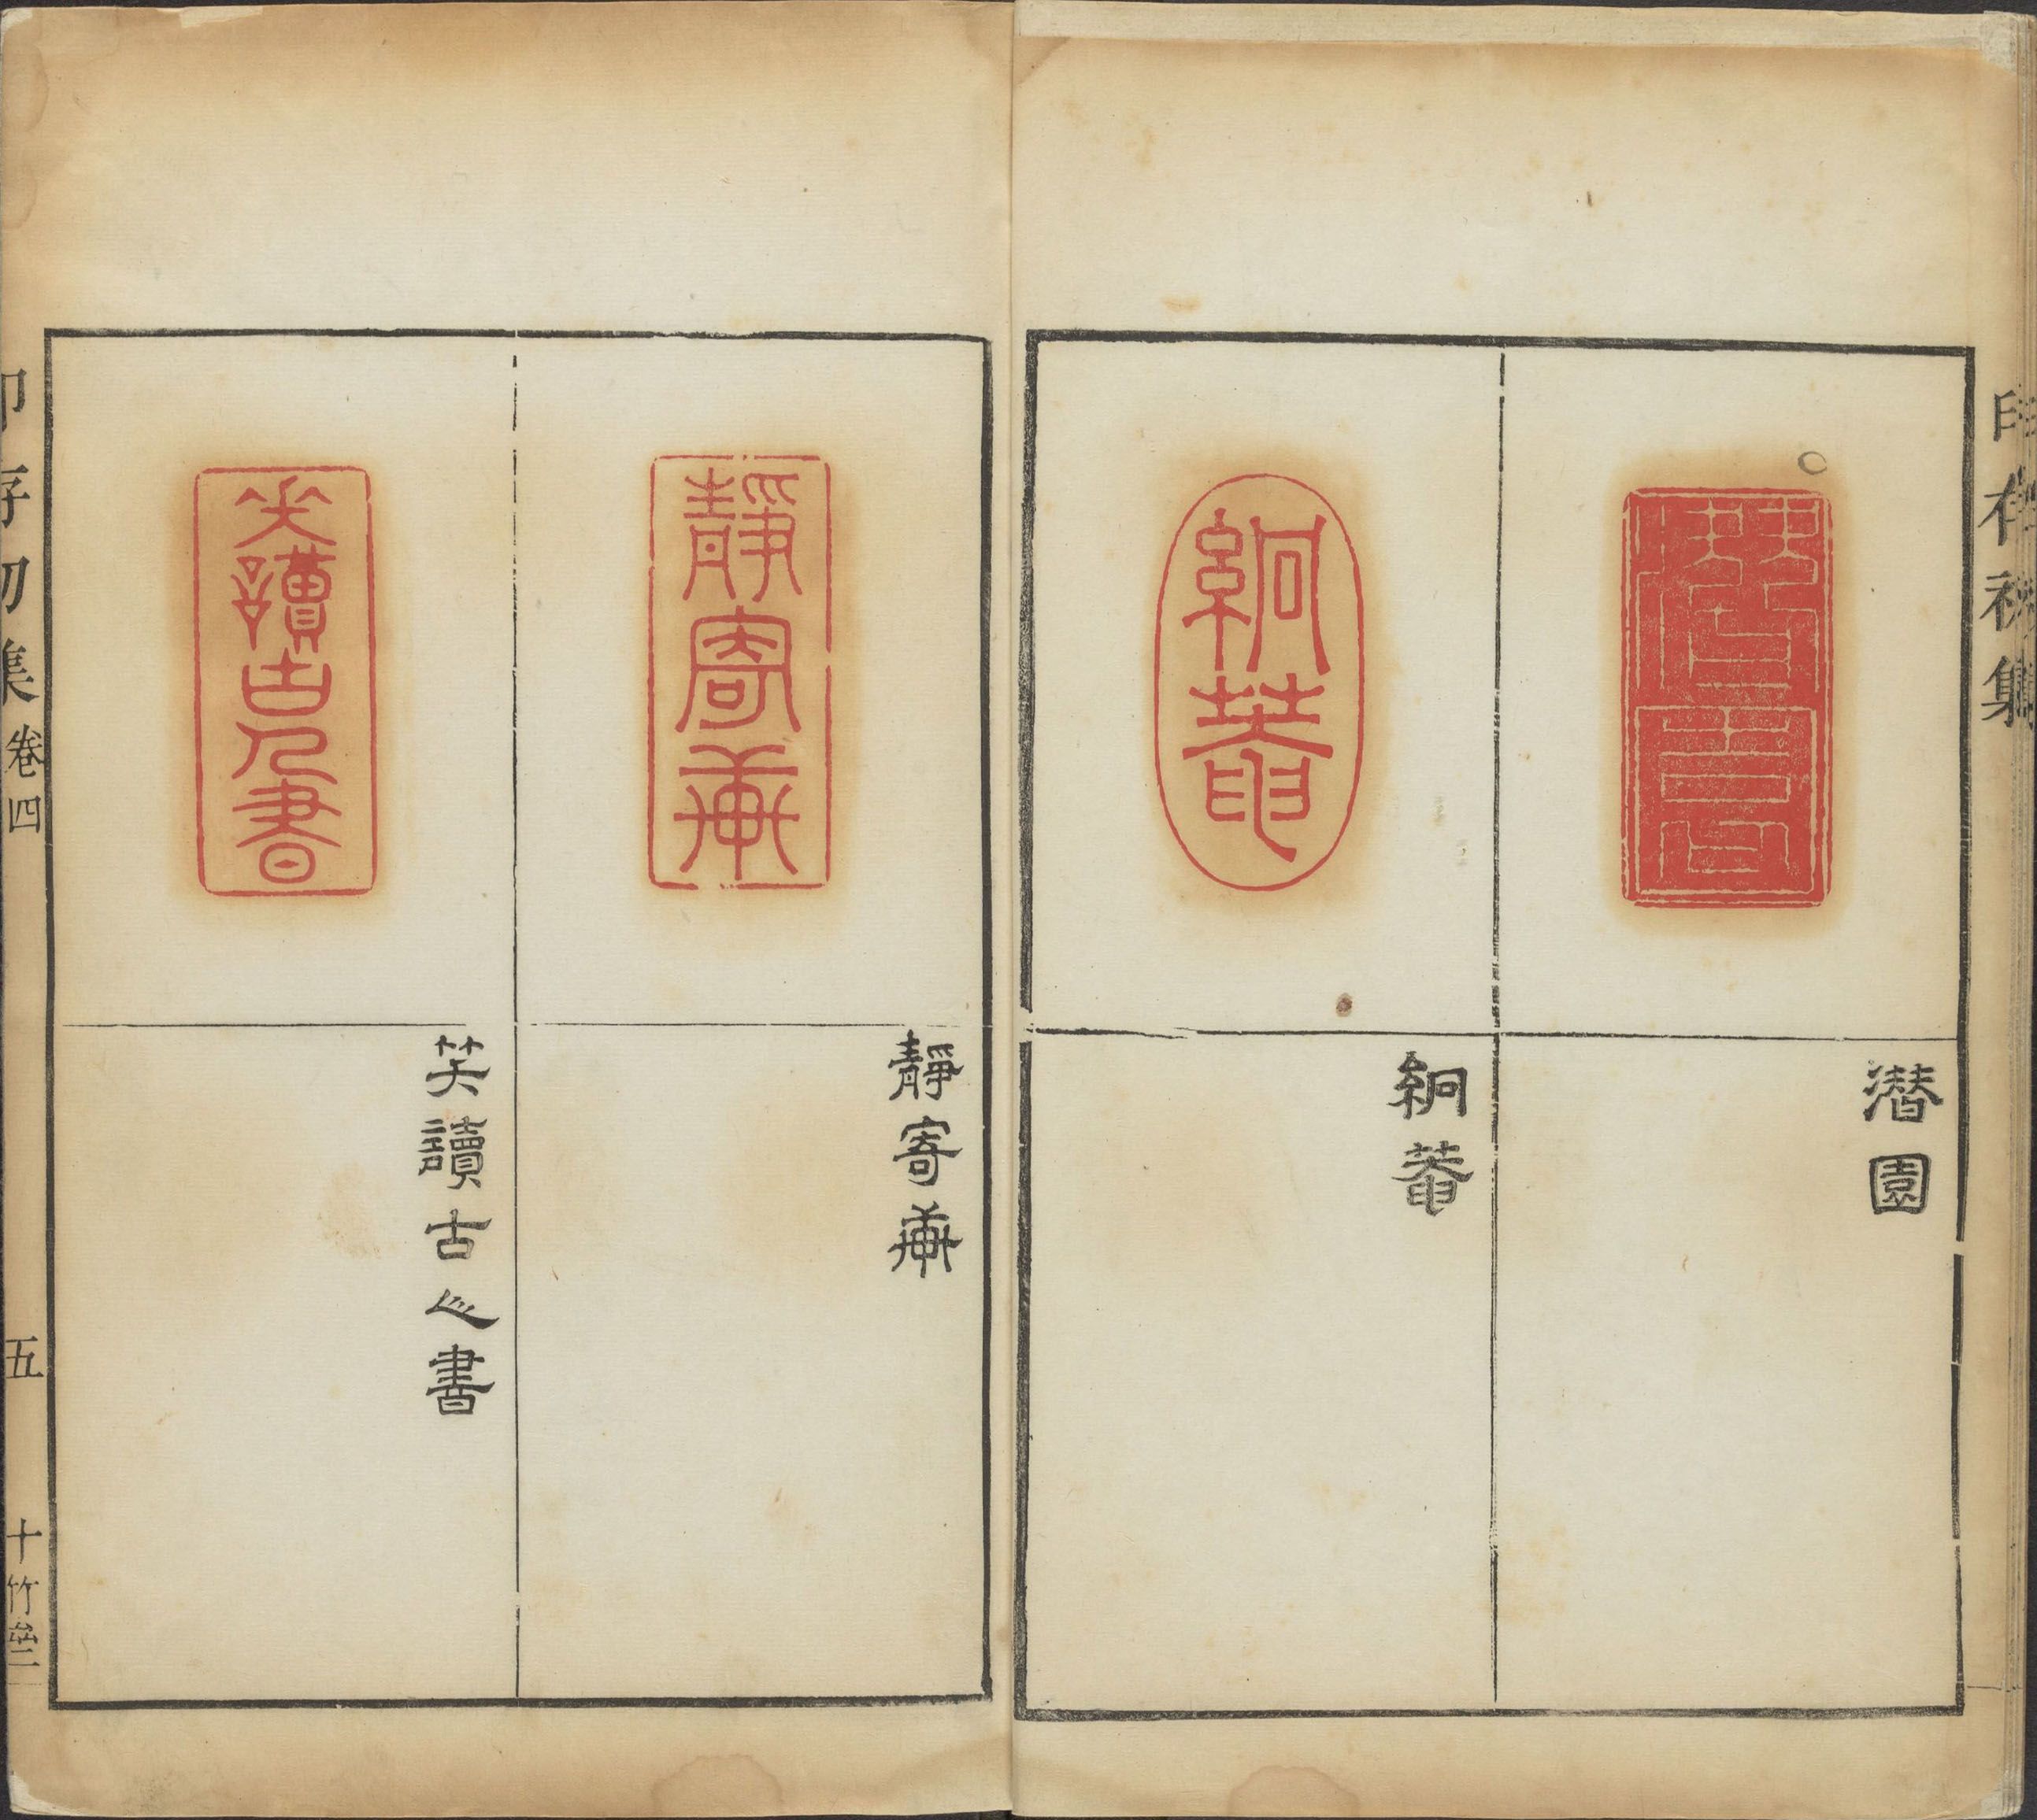 印存初集
潛園
潛園
絅菴
絅菴
靜寄
靜寄
笑讀古人書
笑讀古人書
印存初集 卷四 五 十竹齋